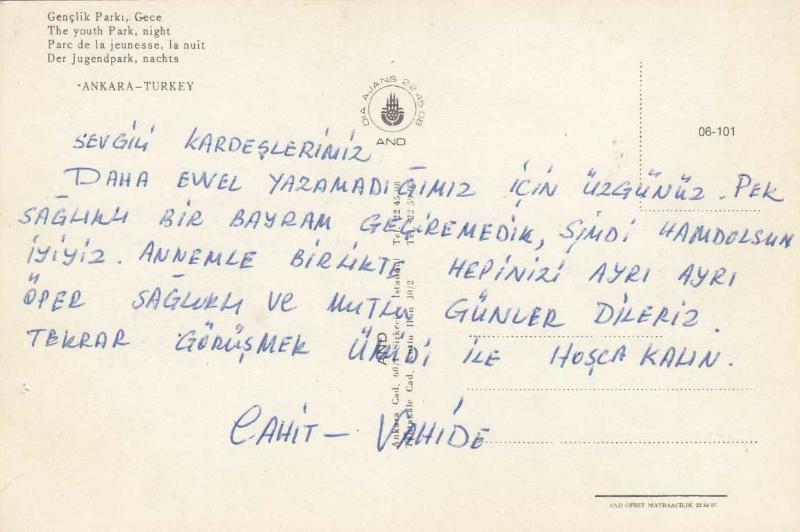 Gençlik Parkı, Gece
The youth Park, night
Parc de la jeunesse, la nuit
Der Jugendpark, nachts
ANKARA–TURKEY
DİA AJANS 22 45 08
AND
06-101
SEVGİLİ KARDEŞLERİMİZ
DAHA EVVEL YAZAMADIĞIMIZ İÇİN ÜZGÜNÜZ. PEK
SAĞLIKLI BİR BAYRAM GEÇİREMEDİK, ŞİMDİ HAMDOLSUN
İYİYİZ. ANNEMLE BİRLİKTE HEPİNİZİ AYRI AYRI
ÖPER SAĞLIKLI VE MUTLU GÜNLER DİLERİZ.
TEKRAR GÖRÜŞMEK ÜMİDİ İLE HOŞÇA KALIN.
CAHİT – VAHİDE
AND
Ankara Cad. Sirkeci İstanbul Tel. 22 45
Cad. 30/2 Tel. 22
AND OFSET MATBAACILIK 22 84 07